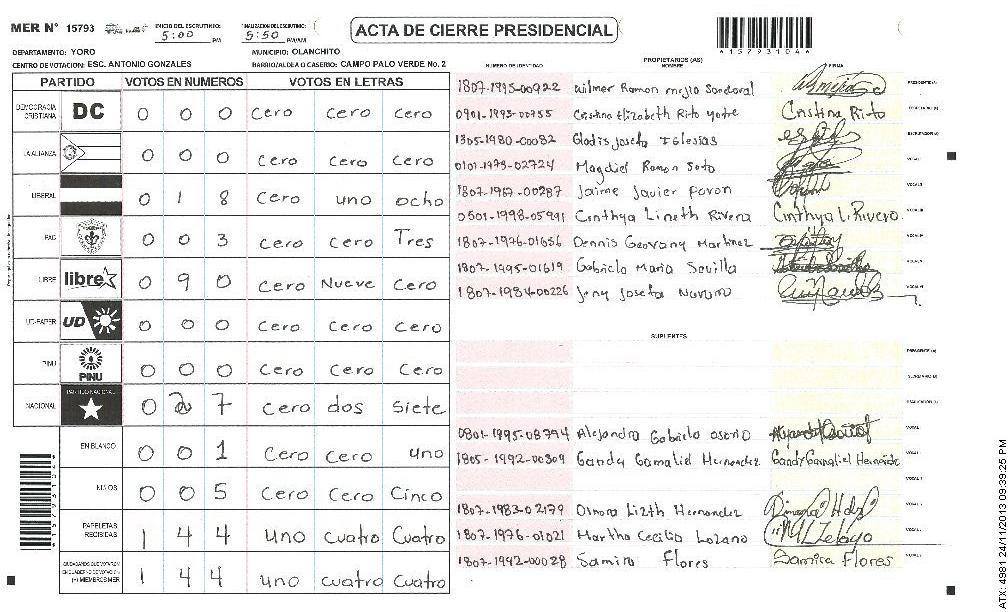 MER N° 15793 INICIO DEL ESCRUTINIO: 5:00 PM FINALIZACION DEL ESCRUTINIO: 5:50 PM/AM ACTA DE CIERRE PRESIDENCIAL
DEPARTAMENTO: YORO MUNICIPIO: OLANCHITO
CENTRO DE VOTACION: ESC. ANTONIO GONZALES BARRIO/ALDEA O CASERIO: CAMPO PALO VERDE No. 2
PARTIDO VOTOS EN NUMEROS VOTOS EN LETRAS
DEMOCRACIA CRISTIANA DC 0 0 0 cero cero cero
LA ALIANZA 0 0 0 cero cero cero
LIBERAL 0 1 8 cero uno ocho
PAC 0 0 3 cero cero Tres
LIBRE libre 0 9 0 cero Nueve cero
UD-FAPER UD 0 0 0 cero cero cero
PINU PINU 0 0 0 cero cero cero
NACIONAL PARTIDO NACIONAL 0 2 7 cero dos siete
EN BLANCO 0 0 1 cero cero uno
NULOS 0 0 5 cero cero cinco
PAPELETAS RECIBIDAS 1 4 4 uno cuatro cuatro
CIUDADANOS QUE VOTARON EN CUADERNO DE VOTACION (+) MIEMBROS MER 1 4 4 uno cuatro cuatro
PROPIETARIOS (AS)
NUMERO DE IDENTIDAD NOMBRE FIRMA
1807-1995-00922 Wilmer Ramon mejia Sandoval PRESIDENTE(A)
0901-1993-00755 Cristina Elizabeth Rito yotre Cristina Rito SECRETARIO(A)
1805-1980-00082 Gladis Josefa Iglesias ESCRUTADOR(A)
0101-1973-02724 Magdiel Ramon Soto VOCAL I
1807-1967-00287 Jaime Javier pavon VOCAL II
0501-1998-05991 Cinthya Lineth Rivera Cinthya L. Rivera VOCAL III
1807-1976-01656 Dennis Geovany Martinez VOCAL IV
1807-1995-01619 Gabriela Maria Sevilla VOCAL V
1807-1984-00226 Jeny Josefa Navarro VOCAL VI
SUPLENTES
PRESIDENTE (A)
SECRETARIO (A)
ESCRUTADOR (A)
0801-1995-08794 Alejandra Gabriela osorio VOCAL
1805-1992-00309 Gandy Gamaliel Hernandez Gandy Gamaliel Hernandez VOCAL
VOCAL
1807-1983-02179 Dinora Lizth Hernandez VOCAL
1807-1976-01021 Martha Cecilia Lozano VOCAL
1807-1992-00028 Samira Flores Samira Flores VOCAL
ATX: 4981 24/11/2013 09:39:25 PM